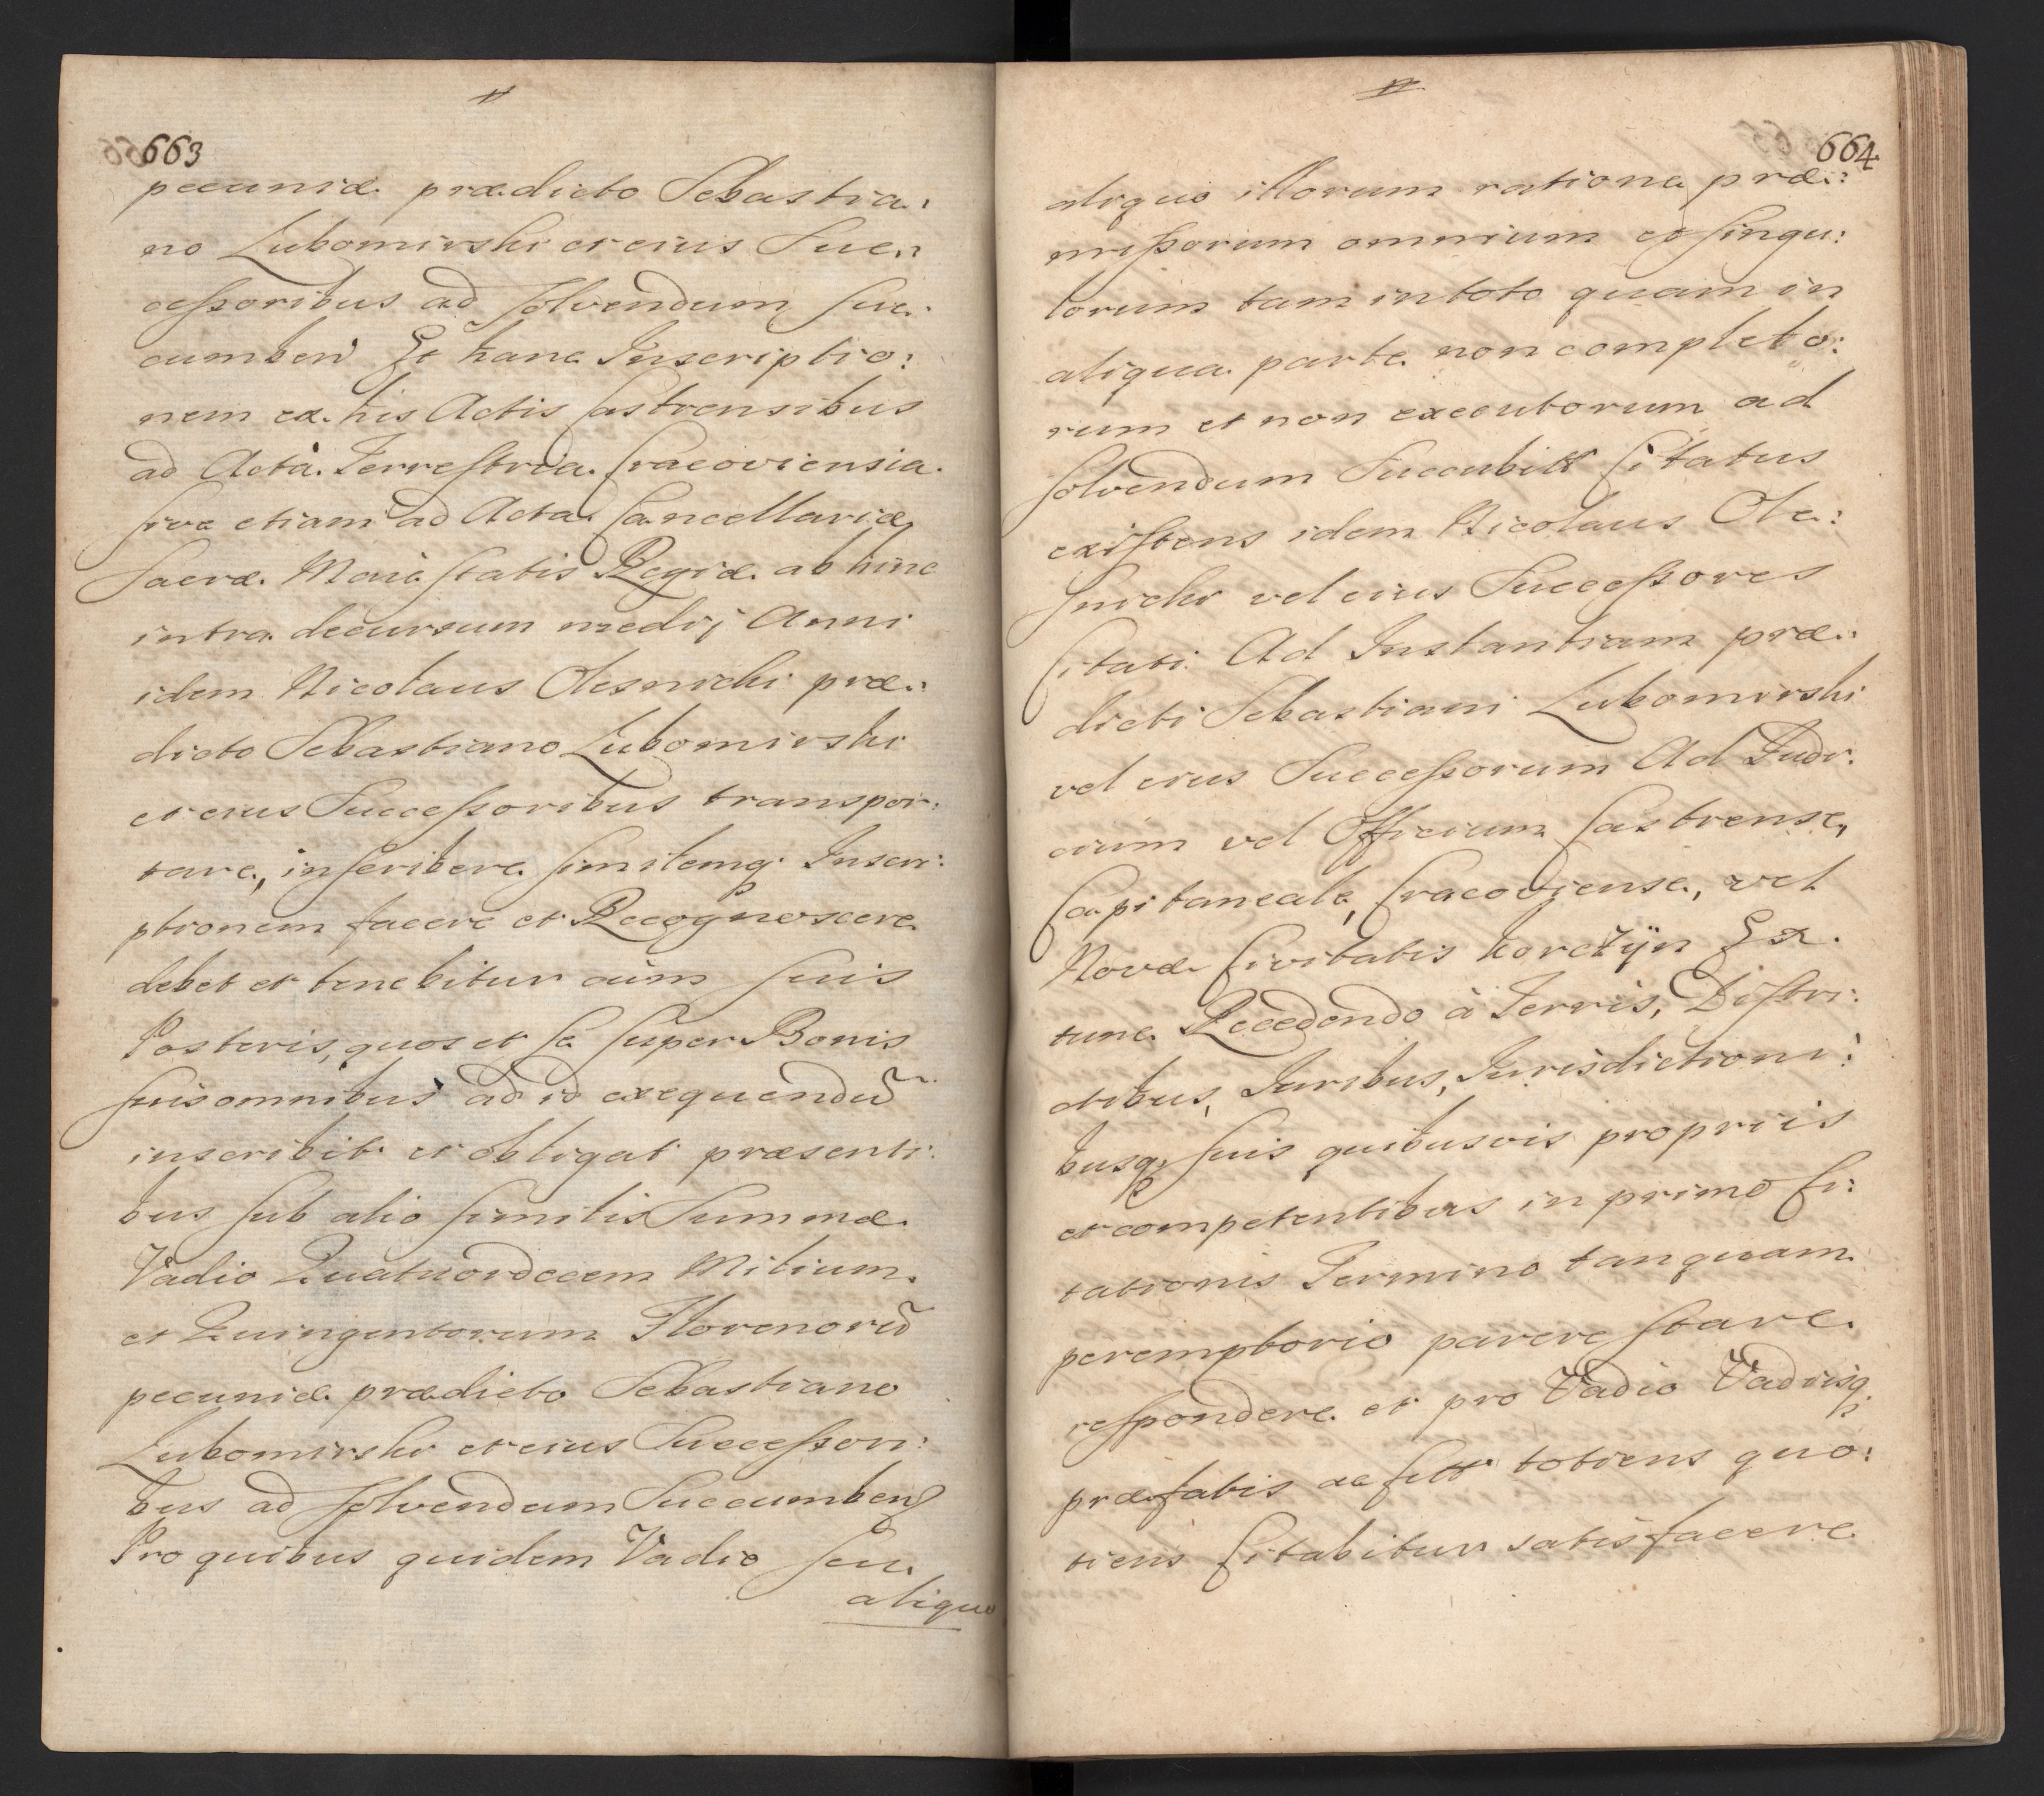 663
pecuniæ prædicto Sebastia:
no Lubomirski et eius Suc:
cessoribus ad solvendum suc:
cumben Et hanc Inscriptio:
nem ex his Actis Castrensibus
ad Acta Terrestria Cracoviensia
sive etiam ad Acta Cancellariæ
Sacræ Maiestatis Regiæ ab hinc
intra decursum medij Anni
idem Nicolaus Olesnicki præ:
dicto Sebastiano Lubomirski
et eius Successoribus transpor:
tare, inscribere similemq Inscri:
ptionem facere et Recognoscere
debet et tenebitur cum suis
Posteris, quos et se super Bonis
suis omnibus ad id exequendũ
inscribit et obligat præsenti:
bus sub alio similis Summæ
Vadio Quatuordecem Milium
et Quingentorum Florenorũ
pecuniæ prædicto Sebastiano
Lubomirski et eius Successori:
bus ad solvendum Succumben
Pro quibus quidem Vadio seu
aliquo
664
aliquo illorum ratione præ:
missorum omnium et singu:
lorum tam in toto quam in
aliqua parte non completo:
rum et non executorum ad
solvendum Succubitt Citatus
existens idem Nicolaus Ole:
snicki vel eius Successores
Citati Ad Instantiam præ:
dicti Sebastiani Lubomirski
vel eius Successorum Ad Iudi:
cium vel Officium Castrense,
Capitaneale, Cracoviense, vel
Novæ Civitatis Korczÿn Ex
tunc Recedendo à Terris, Distri:
ctibus, Iuribus, Iurisdictioni:
busq suis quibusvis propriis
et competentibus in primo Ci:
tationis Termino tanquam
peremptorio parere stare
respondere et pro Vadio Vadiisq
præfatis ac sitt totiens quo:
tiens Citabitur satisfacere